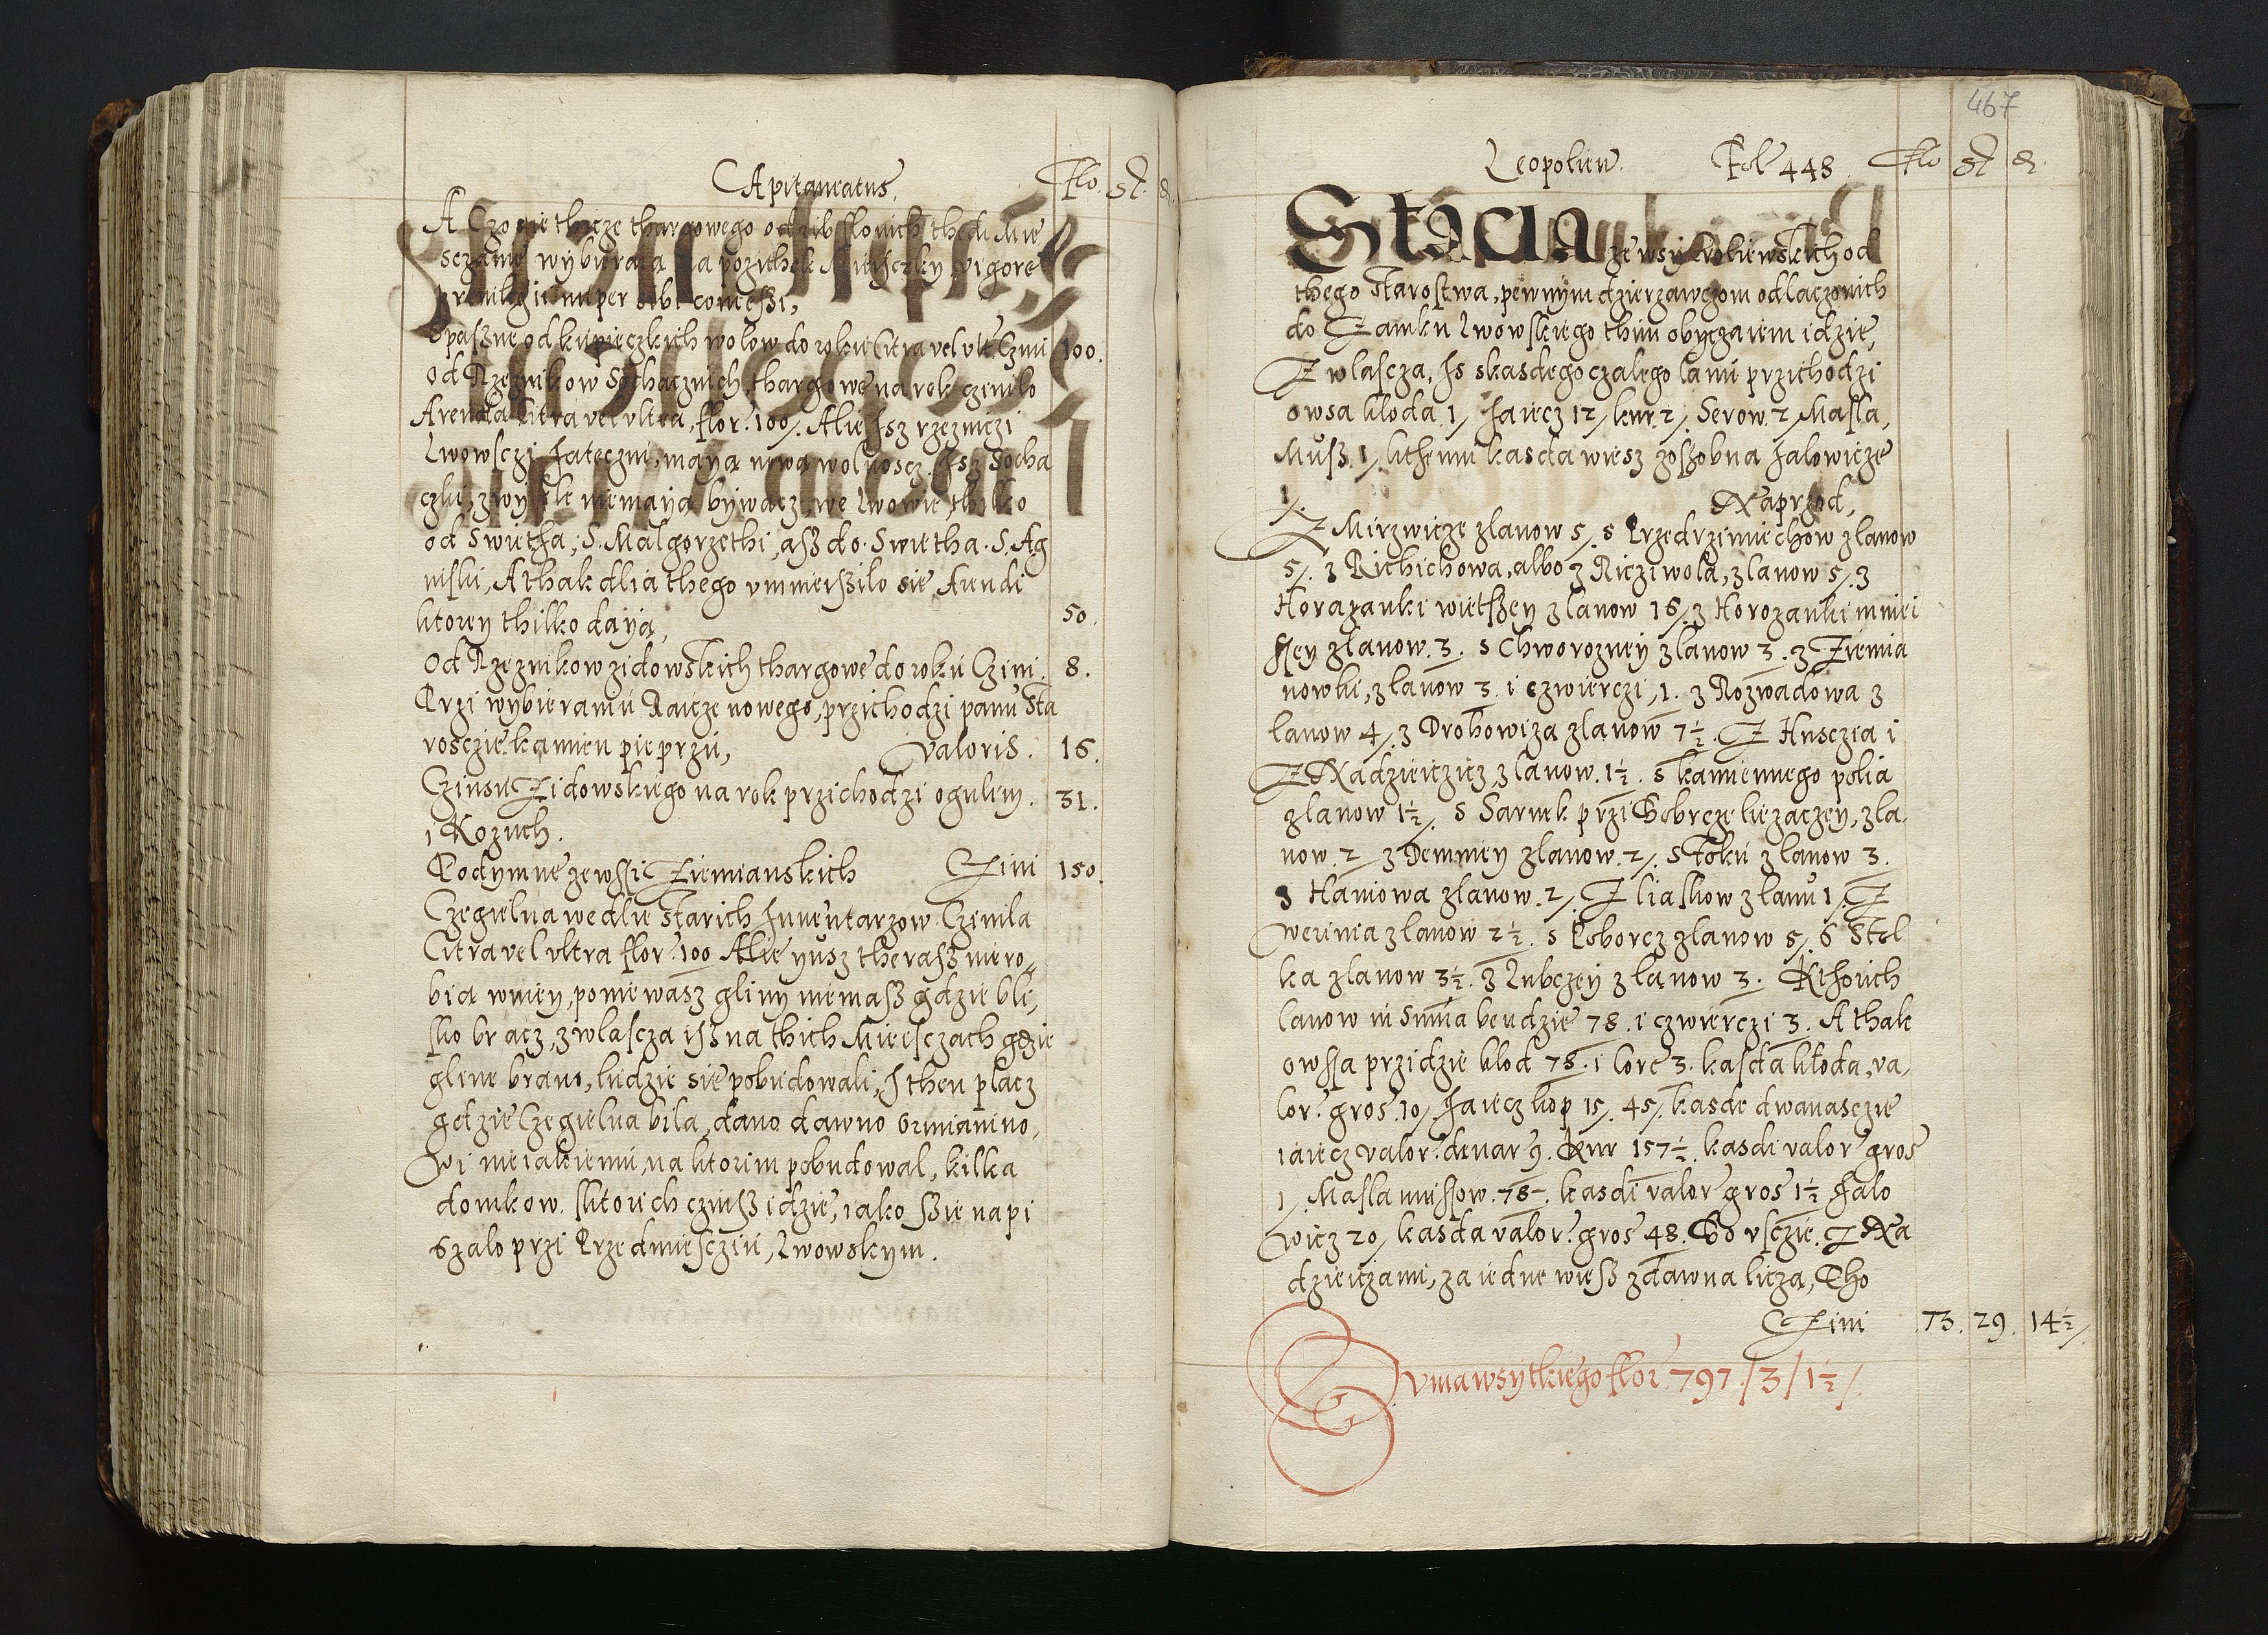 Capitaneatus. Flo. gr. d.
A Czo sie thicze thargowego od rib slonich thedi Mie
sczanie wybieraia na pozithek Mieisczky, vigore
privilegii nuper sibi concessi,
Spaszne od kupieczkich wolow do roku Citra vel vlt. Czini 100.
od Rzeznikow Sochacznich thargowe na rok czinilo
Arenda Citra vel vltra, flor. 100/. Alie Isz rzezniczi
Lwowsczi Jateczni, maya nowa wolnoscz. Isz Socha
czki, zwykle niemaya bywacz, we Lwowie, thilko
od Swietha, S. Malgorzethi, asz do. Swietha. S. Ag
niski, A thak dlia thego vmnieiszilo sie Arendi
ktorey thilko daya, 50.
od Rzeznikow zidowskich thargowe do roku Czini. 8.
Przi wybieraniu Raicze nowego, przichodzi panu Sta
rosczie kamien pieprzu, Valoris. 16.
Czinsu Zidowskiego na rok przichodzi ogulem. 31.
i Kozuch.
Podymne ze wssi Ziemianskich Czini 150.
Czegielna wedlie starich Inventarzow Czinila
Citra vel vltra flor. 100 Alie yusz therasz niero,
bia w niey, poniewasz gliny niemasz gdzie bli,
sko bracz, zwlascza isz na thich Mieisczach gdzie
gline brano, ludzie sie pobudowali, I then placz
gdzie Czegielna bila, dano dawno Ormianino,
wi nieiakiemu, na ktorim pobudowal, kilka
domkow. sktorich czinsz idzie, iako sie napi
szalo przi Przedmiesciu, Lwowskym.
467
Leopolien. Fol. 448. Flo gr d.
Stacia ze wsy Kroliewskich od
thego Starostwa, pewnym dzierzawczom odlaczonich
do Zamku Lwowskiego thim obyczaiem idzie,
Zwlascza, Is skasdego czalego lanu przichodzi
owsa kloda 1/ Jaiecz 12/ kur 2/. Serow 2/ Masla,
Musz. 1/ kthemu kasda wiesz zosobna Jalowicze
1/. Naprzod,
Z Mirzwicze zlanow 5/. s Przedrzimiechow zlanow
5/. z Richichowa, albo z Riczi wola, zlanow 5/. z
Horazanki wietszey zlanow 16/. z Horozanki mniei
szey zlanow. 3. s Chworozney zlanow 3. z Ziemia
nowki, zlanow 3 i czwierczi, 1. z Rozwadowa z
lanow 4/. z Drohowiza zlanow 7½. Z Husczia i
Z Nadzieiczicz, zlanow. 1½. s kamiennego polia
zlanow 1½/. s Sarnek przi Bobrcze liezaczey, zla
now. 2/ z Demniey zlanow. 2/. s Toku zlanow 3.
z Haniowa zlanow. 2/. Z liaskow zlanu 1/. Z
Wirinia zlanow 2½. s Poborcz zlanow 5/. s Stol
ka zlanow 3½. z Lubczey zlanow 3. Kthorich
lanow in Summa bendzie 78. i czwierczi 3. A thak
owssa przidzie klod 78. i Corc 3. kasda kloda, va,
lor. gros. 10/ Jaiecz kop 15/. 45/. kasde dwanasczie
iaiecz valor. denar 9. Kur 157½. kasdi valor gros
1/. Masla mussow. 78. kasdi valor gros 1½ Jalo
wicz 20/ kasda valor. gros 48. Bo vsczie. Z Na
dzieiczami, za iedne wiesz zdawna licza, Tho
Czini 73. 29. 14½/.
Suma wsytkiego flor. 797/3/1½/.